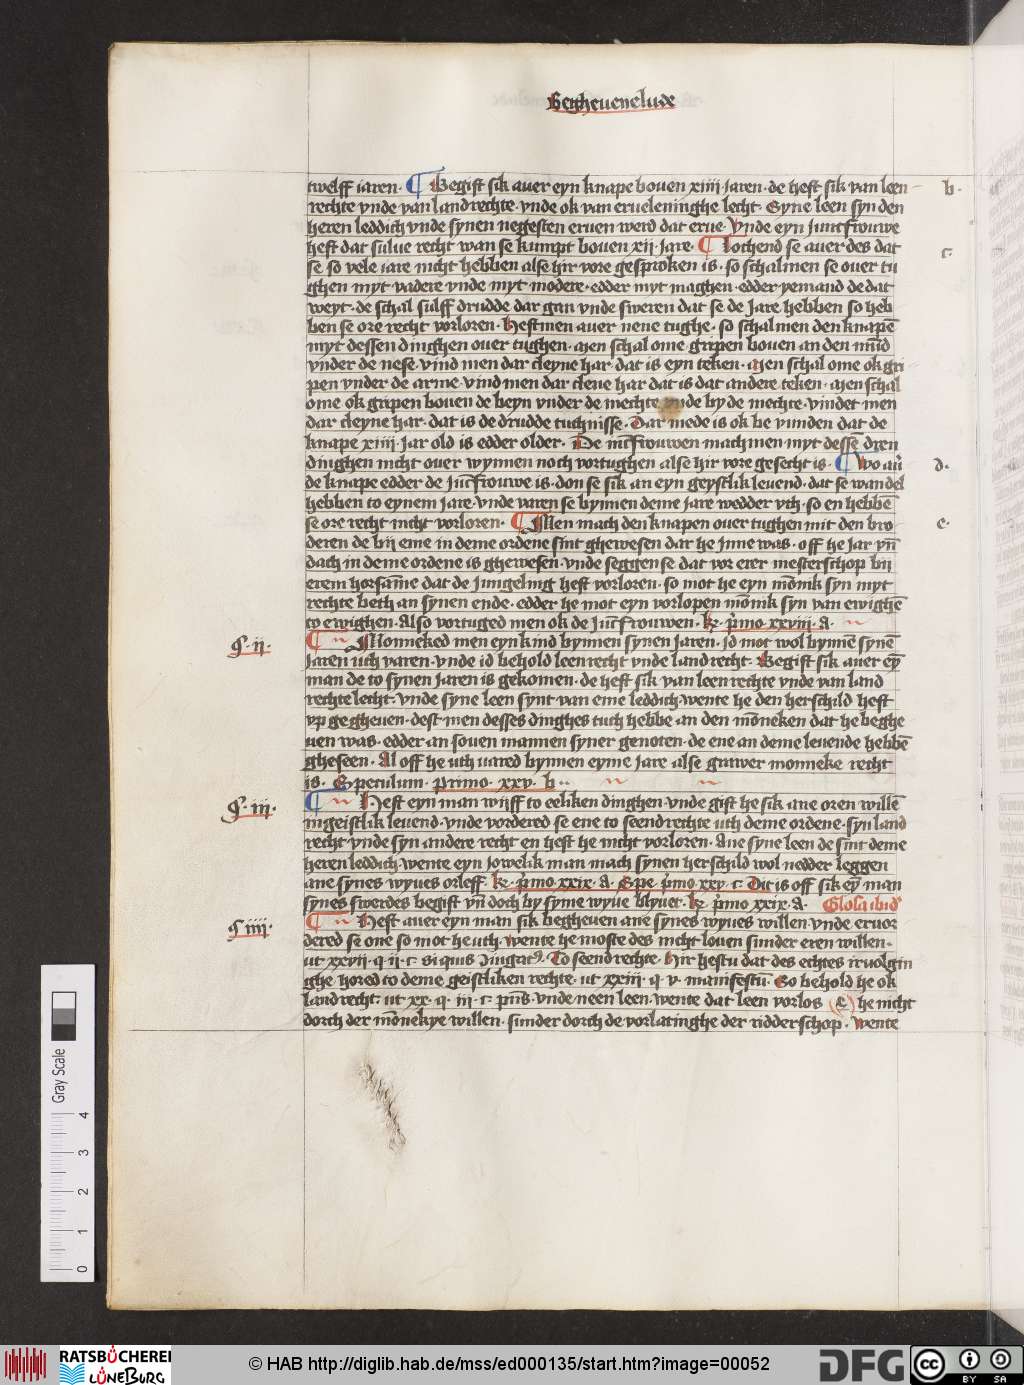 Begheuenelude
twelff iaren · ¶ Begift sik auer eyn knape bouen xiiii jaren · de heft sik van leen
b ·
rechte vnde van landrechte · vnde ok van erueleninghe lecht · Syne leen syn den
heren leddich vnde synen negesten eruen werd dat erue · Vnde eyn juncfrouwe
heft dat sulue recht wan se kumpt bouen xij jare · ¶ Lochend se auer des dat
c ·
se so vele iare nicht hebben alse hir vore gesproken is · so schalmen se ouer tu
ghen myt vadere vnde myt modere · edder myt maghen · edder yemand de dat
weyt · de schal sulff drudde dar gan vnde sweren dat se de jare hebben so heb
ben se ore recht vorloren · Heftmen auer nene tughe · so schalmen den knapē
myt dessen dinghen ouer tughen · Men schal ome gripen bouen an den mūd
vnder de nese · vind men dar cleyne har · dat is eyn teken · Men schal ome ok gri
pen vnder de arme · vind men dar clene har dat is dat andere teken · Men schal
ome ok gripen bouen de beyn vnder de mechte vnde by de mechte · vindet men
dar cleyne har · dat is de drudde tuchnisse · Dar mede is ok be vunden dat de
knape xiiii · jar old is edder older · De jūcfrouwen mach men myt dessē dren
dinghen nicht ouer wynnen noch vortughen alse hir vore gesecht is · ¶ Wo au̅
d ·
de knape edder de jūcfrouwe is · don se sik an eyn geystlik leuend · dat se wandel
hebben to eynem jare · vnde varen se bynnen deme jare wedder vth · so en hebbē
se ore recht nicht vorloren · ¶ Men mach den knapen ouer tughen mit den bro
e ·
deren de bij eme in deme ordene sint ghewesen dar he jnne was · off he jar vn̄
dach in deme ordene is ghewesen · vnde seggen se dat vor erer mesterschop bij
erem horsam̄e dat de jungeling heft vorloren · so mot he eyn mōnik syn myt
rechte beth an synen ende · edder he mot eyn vorlopen mōnik syn van ewighē
to ewighen · Also vortuged men ok de jūcfrouwen · k · p̄mo · xxviii · A ·
§ · ij ·
¶ Monneked men eyn kind bynnen synen jaren · jd mot wol bynnē synē
jaren uth varen · vnde id behold leenrecht vnde landrecht · Begift sik auer ey̅
man de to synen jaren is gekomen · de heft sik van leenrechte vnde van land
rechte lecht · vnde syne leen synt van eme leddich · wente he den herschild heft
vp gegheuen · dest men desses dinghes tuch hebbe an den mōneken dat he beghe
uen was · edder an souen mannen syner genoten · de ene an deme leuende hebbē
gheseen · Al off he uth vared bynnen eyme jare alse grawer monneke recht
is · Speculum · primo · xxv · b ·
§ · iii ·
¶ Heft eyn man wijff to eeliken dinghen · vnde gift he sik ane oren willē
ingeistlik leuend · vnde vordered se ene to seendrechte uth deme ordene · syn land
recht vnde syn andere recht en heft he nicht vorloren · Ane syne leen de sint deme
heren leddich · wente eyn jowelik man mach synen herschild wol nedder leggen
ane synes wyues orleff · k · p̄mo · xxix · A · Spe · p̄mo · xxv · c · Dit is off sik ey̅ man
synes swerdes begift vn̄ doch by syme wyue blyuet · k · p̄mo · xxix · A · Glosa ibid
§ iiii ·
¶ Heft auer eyn man sik begheuen ane synes wyues willen · vnde ervor
dered se one so mot he uth · wente he moste des nicht louen sunder eren willen ·
ut xxvij · q · ij · c · si quis Jugat9 · To seendrechte · Hir hestu dat des echtes irvolgin
ghe hored to deme geistliken rechte · ut xxiii · q · v · manifestū · So behold he ok
landrecht · ut xx · q · iii · c · p̄ns · vnde neen leen · wente dat leen vorlos he nicht
dorch der mōnekye willen · sunder dorch de vorlatinghe der ridderschop · wente
Gray Scale
0 1 2 3 4
RATSBÜCHEREI
LÜNEBURG
© HAB http://diglib.hab.de/mss/ed000135/start.htm?image=00052
DFG
cc
BY SA